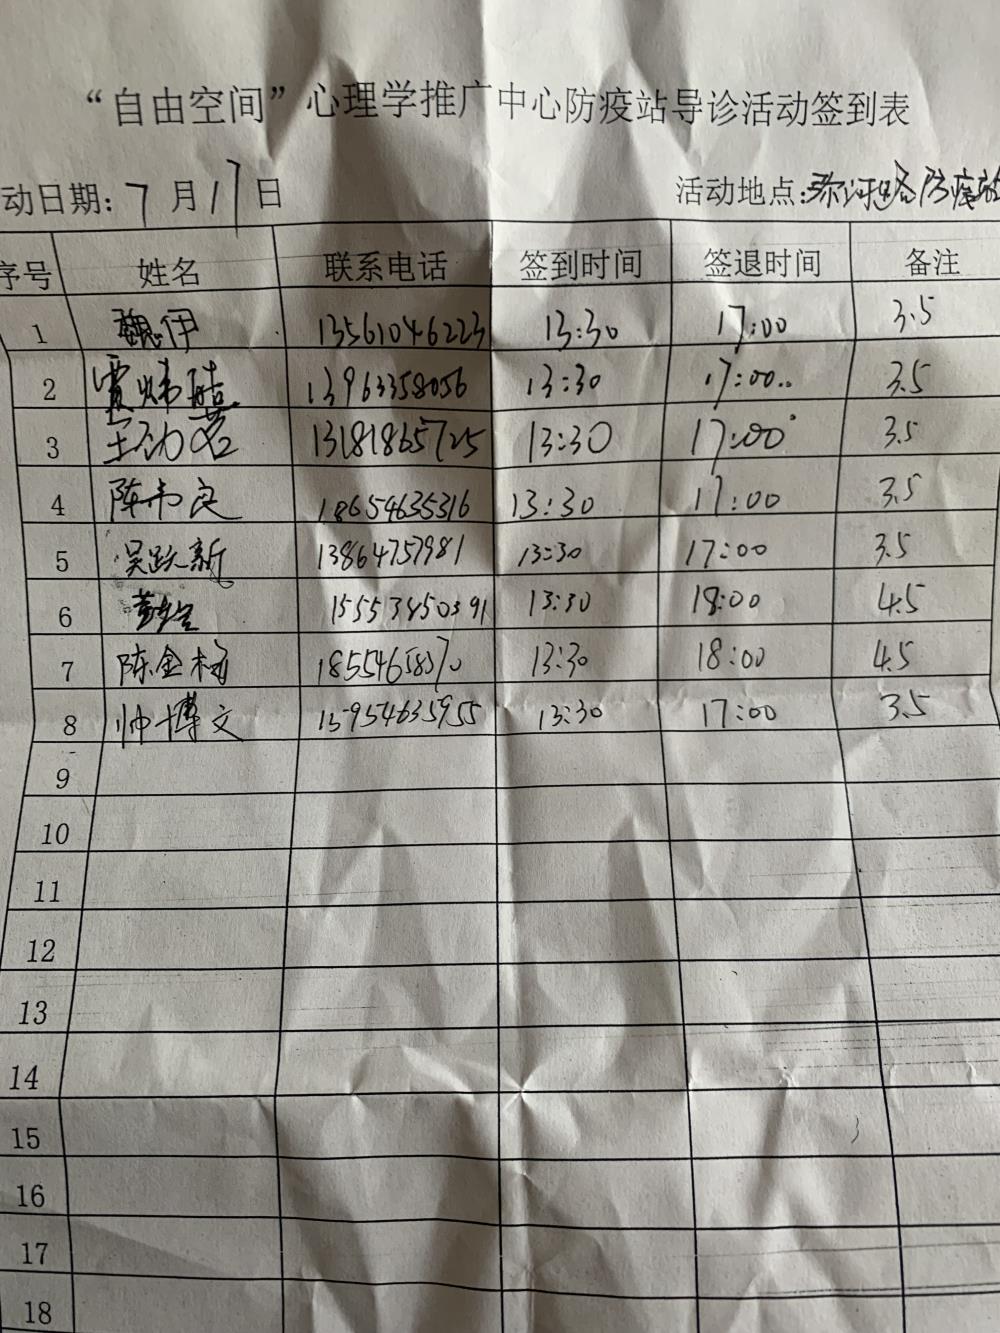 “自由空间”心理学推广中心防疫站导诊活动签到表
动日期:7月17日 活动地点:路防疫站
序号 姓名 联系电话 签到时间 签退时间 备注
1 魏伊 13561046223 13:30 17:00 3.5
2 13963358056 13:30 17:00 3.5
3 13181865725 13:30 17:00 3.5
4 陈 18654635316 13:30 17:00 3.5
5 吴跃新 13864757981 13:30 17:00 3.5
6 15553850391 13:30 18:00 4.5
7 陈金 13:30 18:00 4.5
8 帅博文 13954635955 13:30 17:00 3.5
9
10
11
12
13
14
15
16
17
18